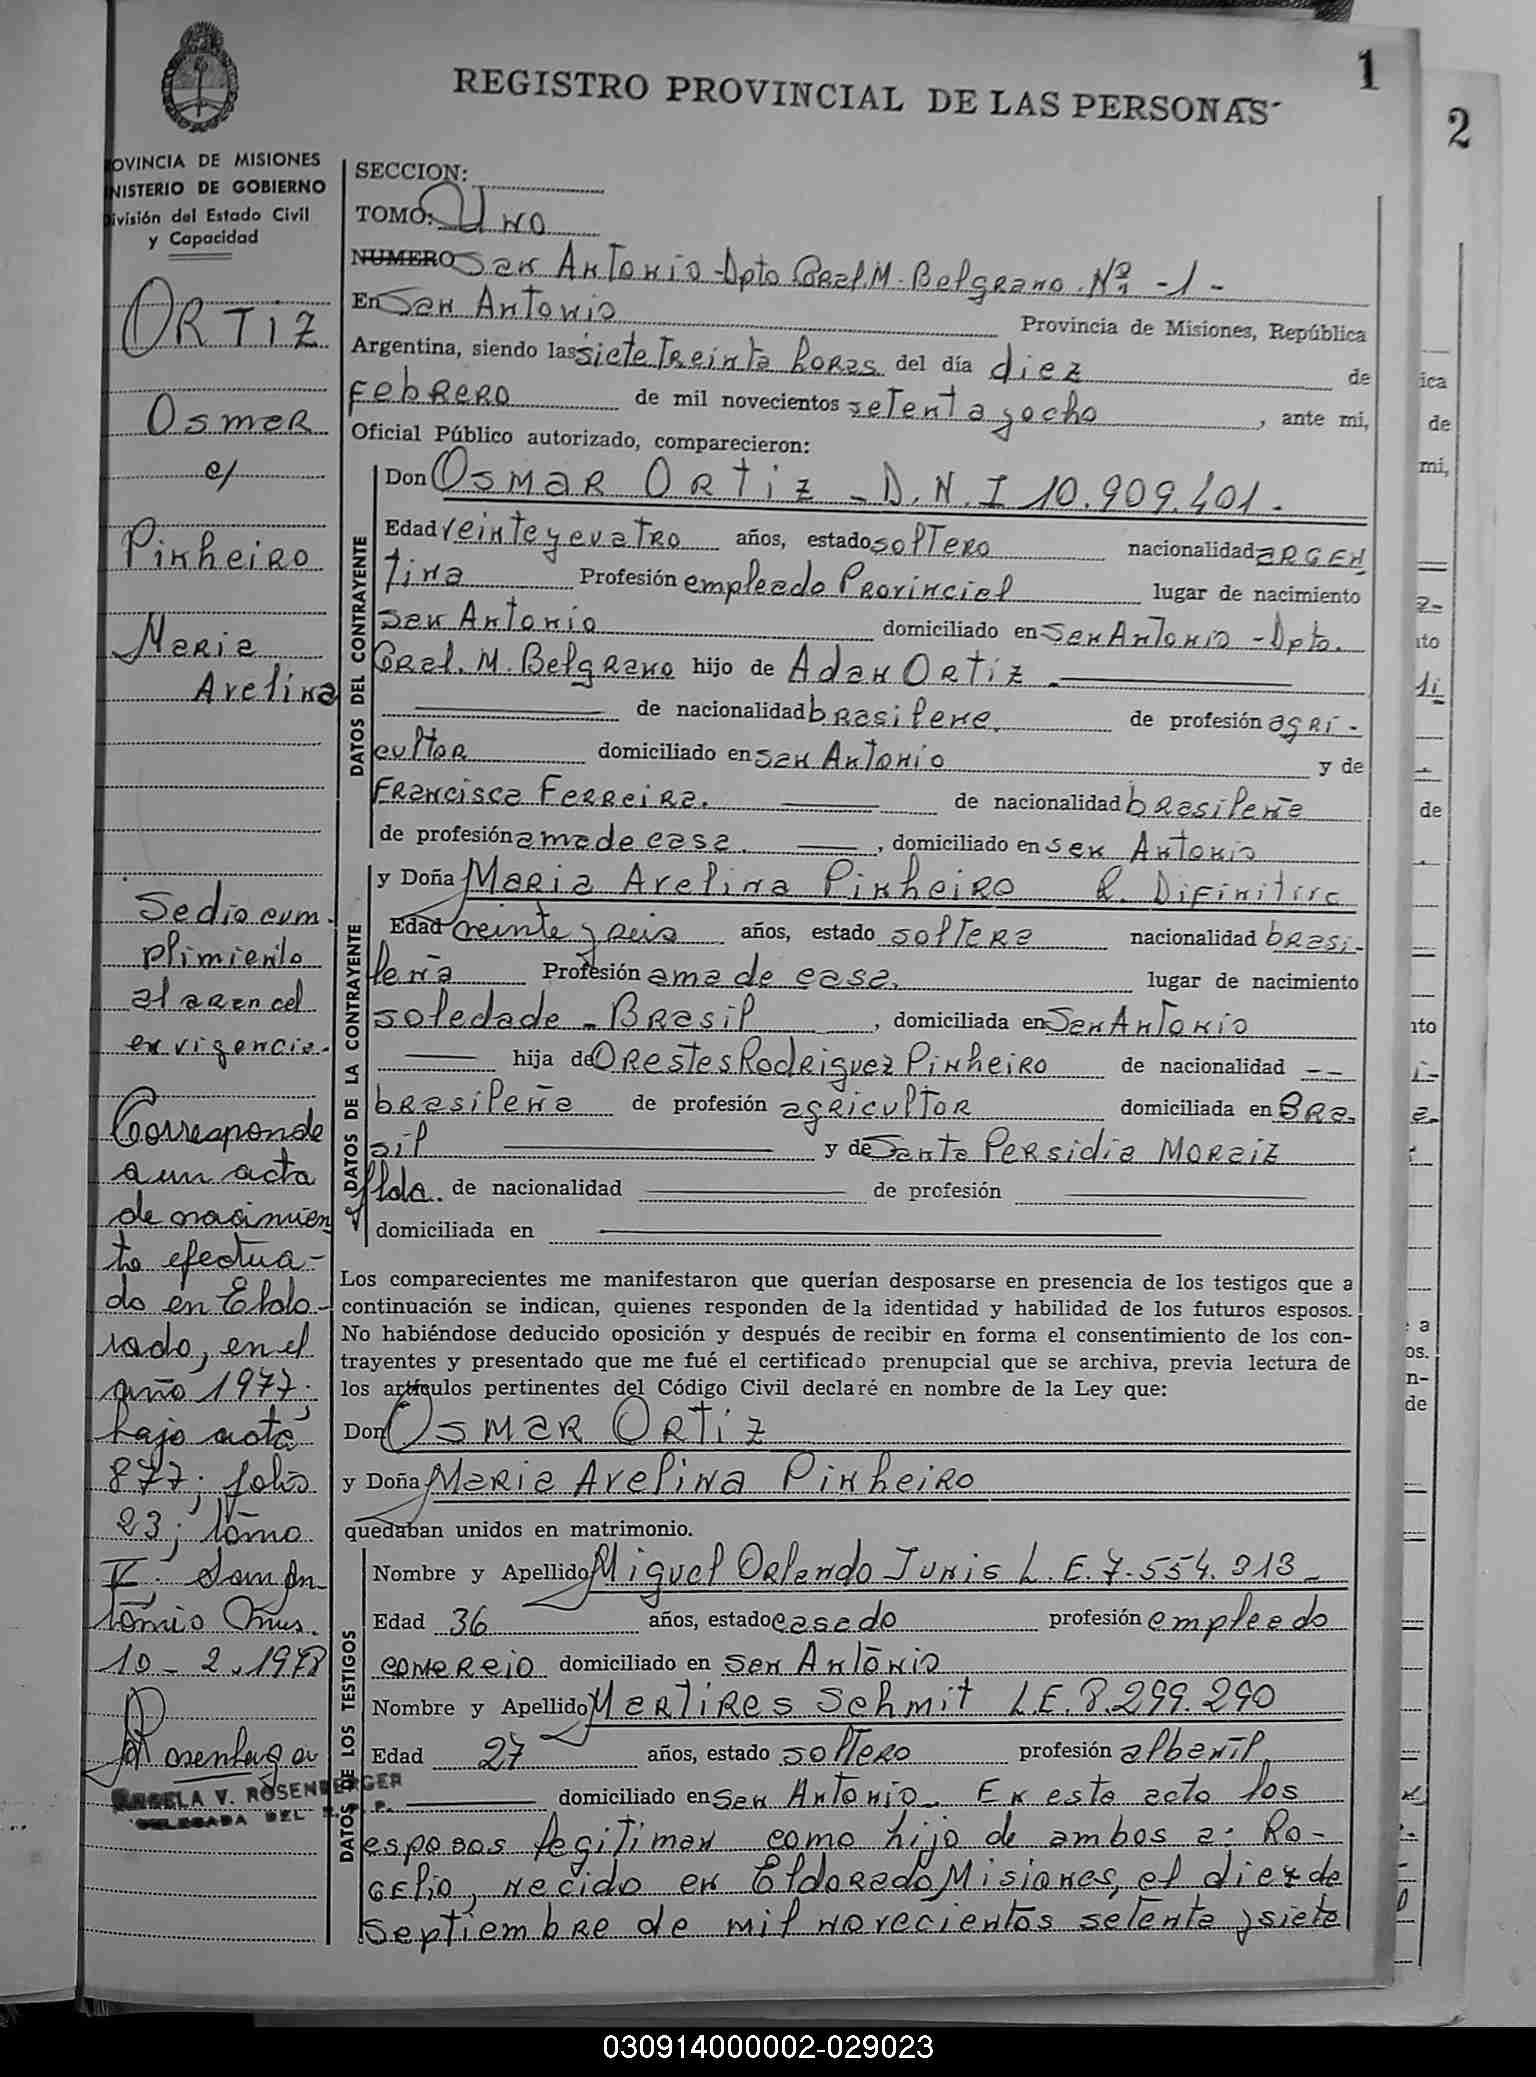 1
REGISTRO PROVINCIAL DE LAS PERSONAS
2
OVINCIA DE MISIONES
NISTERIO DE GOBIERNO
ivisión del Estado Civil
y Capacidad
ORTIZ
Osmar
c/
Pinheiro
Maria
Avelina
Se dio cum-
plimiento
al arancel
en vigencia.
Corresponde
a un acta
de nacimien
to efectua-
do en Eldo-
rado, en el
año 1977;
bajo acta
877; folio
23; tomo
V; San An
tonio Mnes.
10-2.1978
Rosenberger
ANGELA V. ROSENBERGER
DELEGADA DEL R. P. P.
SECCION:
TOMO: Uno
NUMERO San Antonio-Dpto Gral. M. Belgrano. Nº -1-
En San Antonio Provincia de Misiones, República
Argentina, siendo las siete treinta horas del día diez de
febrero de mil novecientos setenta y ocho, ante mi,
Oficial Público autorizado, comparecieron:
DATOS DEL CONTRAYENTE
Don Osmar Ortiz - D.N.I 10.909.401.
Edad veinte y cuatro años, estado soltero nacionalidad argen
tina Profesión empleado Provincial lugar de nacimiento
San Antonio domiciliado en San Antonio-Dpto.
Gral. M. Belgrano hijo de Adan Ortiz
de nacionalidad brasileña. de profesión agri-
cultor domiciliado en San Antonio y de
Francisca Ferreira. de nacionalidad brasileña
de profesión ama de casa. , domiciliado en San Antonio
DATOS DE LA CONTRAYENTE
y Doña Maria Avelina Pinheiro R. Difinitiva
Edad veinte y seis años, estado soltera nacionalidad brasi-
leña Profesión ama de casa. lugar de nacimiento
soledade - Brasil , domiciliada en San Antonio
hija de Orestes Rodriguez Pinheiro de nacionalidad --
brasileña de profesión agricultor domiciliada en Bra-
sil y de Santa Persidia Moraiz
fllda. de nacionalidad de profesión
domiciliada en
Los comparecientes me manifestaron que querían desposarse en presencia de los testigos que a
continuación se indican, quienes responden de la identidad y habilidad de los futuros esposos.
No habiéndose deducido oposición y después de recibir en forma el consentimiento de los con-
trayentes y presentado que me fué el certificado prenupcial que se archiva, previa lectura de
los artículos pertinentes del Código Civil declaré en nombre de la Ley que:
Don Osmar Ortiz
y Doña Maria Avelina Pinheiro
quedaban unidos en matrimonio.
DATOS DE LOS TESTIGOS
Nombre y Apellido Miguel Orlando Junis L.E. 7.554.313-
Edad 36 años, estado casado profesión empleado
comercio domiciliado en San Antonio
Nombre y Apellido Martires Schmit L.E. 8.299.290
Edad 27 años, estado soltero profesión albañil.
domiciliado en San Antonio. En esto acto los
esposos legitiman como hijo de ambos a: Ro-
gelio, nacido en Eldorado Misiones, el diez de
septiembre de mil novecientos setenta y siete
ica
de
mi,
030914000002-029023